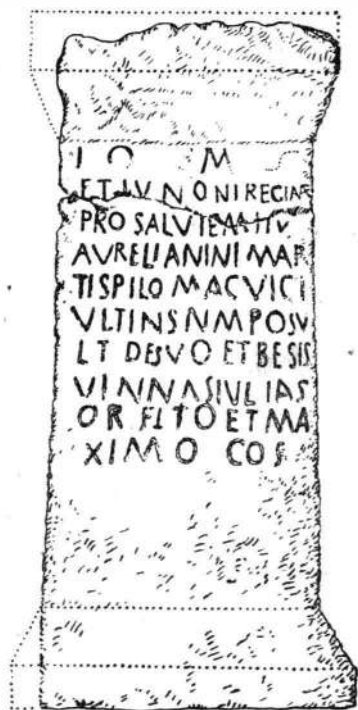 I O M
ET IVNONI RECIAE
PRO SALVTE
AVRELIANINI MAR
TISPILO MACVICI
VLTINSNMPOSV
LT ET BESIS
VINNASIVLIAS
ORFITO ET MA
XIMO COS